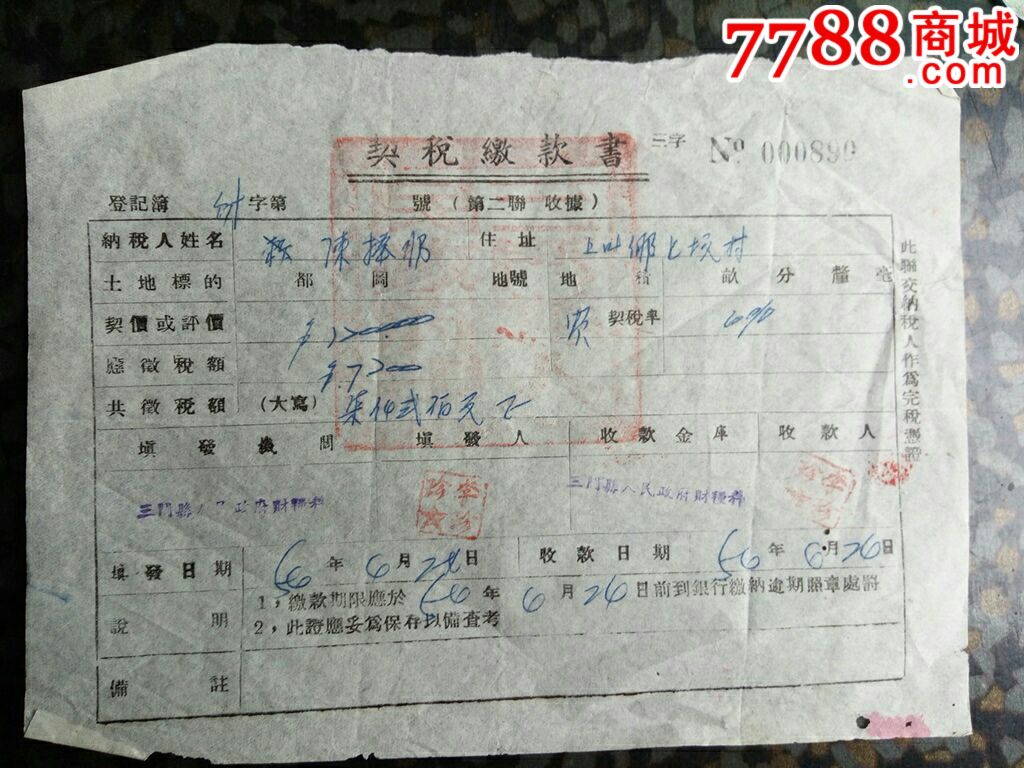 7788商城
.com
契稅繳款書 三字 No 000890
登記簿 字第 號(第二聯 收據)
納稅人姓名 陳振 住址 上 鄉上坑村
土地標的 都 圖 地號 地積 畝分釐毫
契價或評價 買 契稅率 6%
應徵稅額
共徵稅額 (大寫) 柒仟弍佰元正
填發機關 填發人 收款金庫 收款人
三門縣人民政府財糧科 三門縣人民政府財糧科
填發日期 年6月24日 收款日期 年6月26日
說明 1,繳款期限應於 年6月26日前到銀行繳納逾期照章處辦
2,此證應妥爲保存以備查考
備註
此聯交納稅人作爲完稅憑證